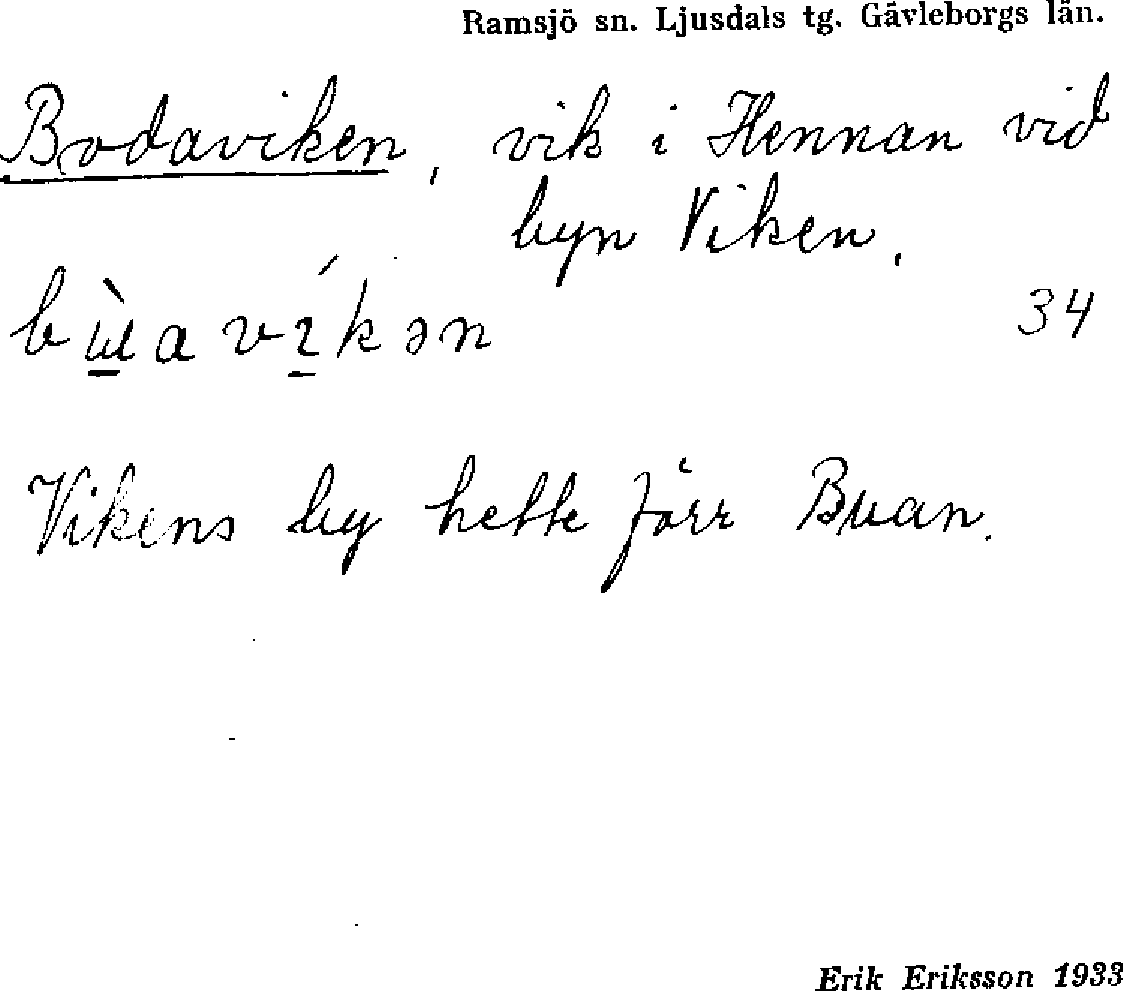 Ramsjö sn. Ljusdals tg. Gävleborgs län.
Bodaviken, vik i Hennan vid
byn Viken.
bɯ̀avíkən
34
Vikens by hette förr Buan.
Erik Eriksson 1933